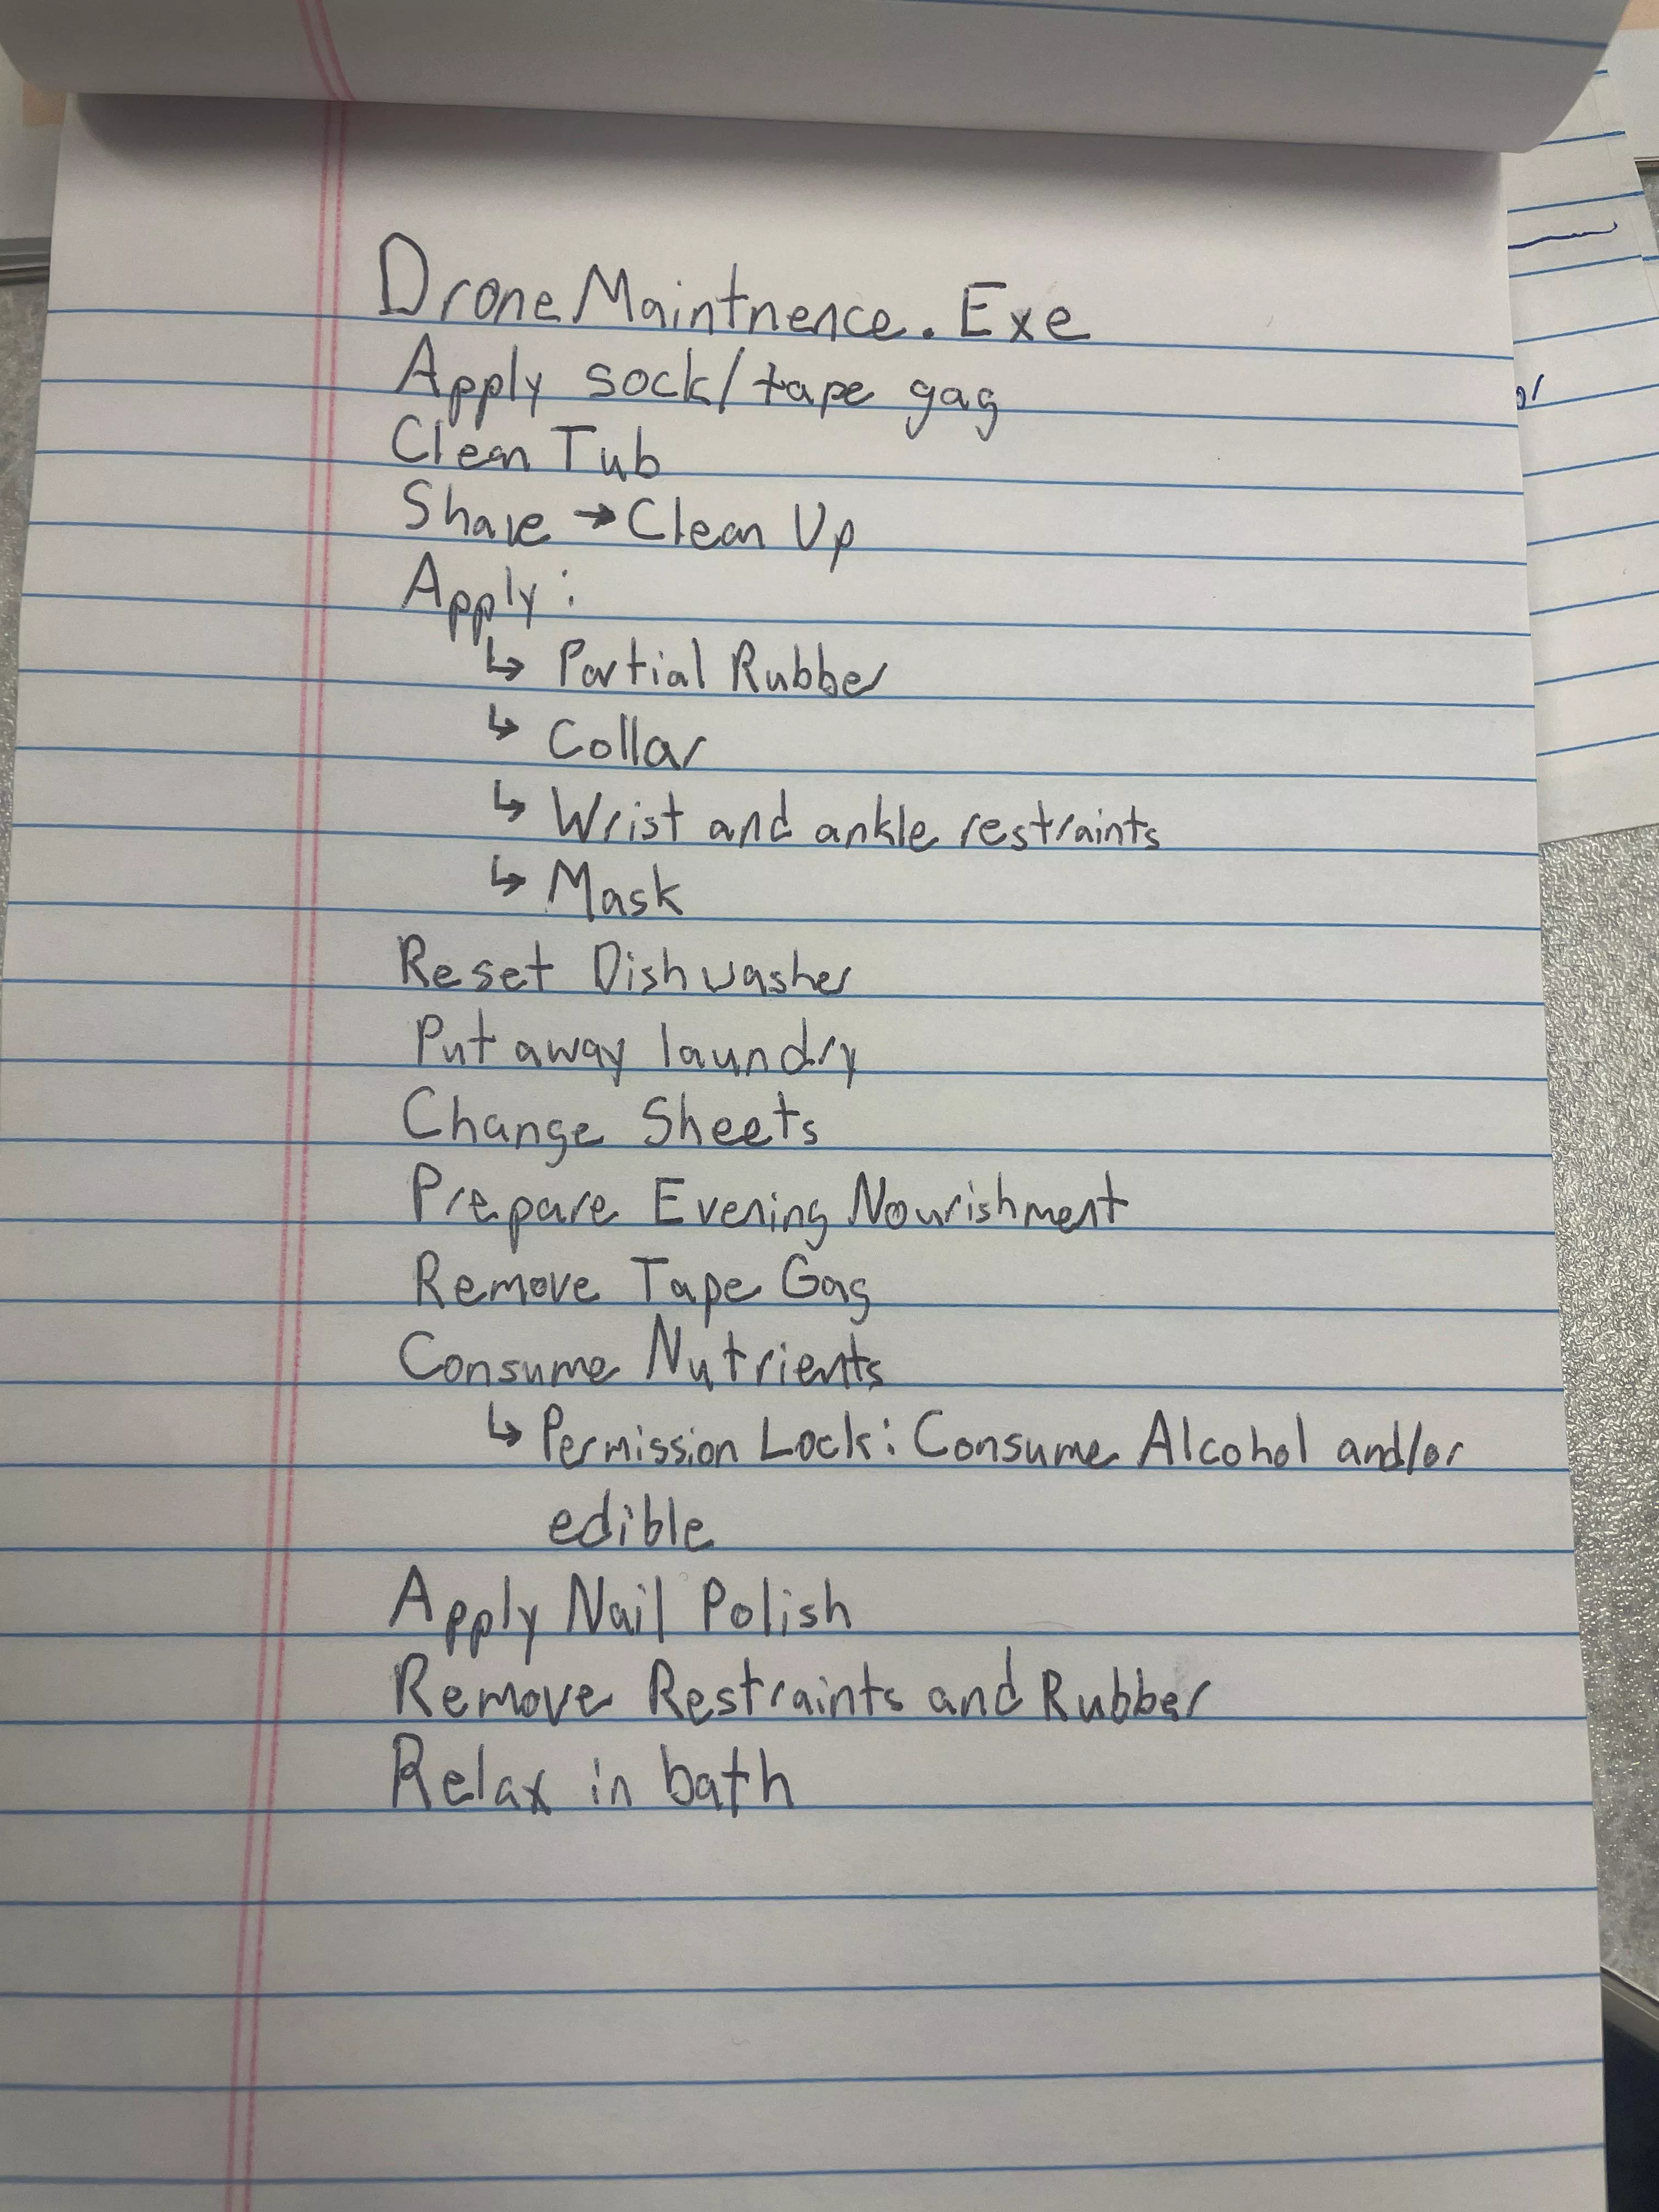 Drone Maintnence.Exe
Apply sock/tape gag
Clean Tub
Shave → Clean Up
Apply:
↳ Partial Rubber
↳ Collar
↳ Wrist and ankle restraints
↳ Mask
Reset Dishwasher
Put away laundry
Change Sheets
Prepare Evening Nourishment
Remove Tape Gag
Consume Nutrients
↳ Permission Lock: Consume Alcohol and/or
edible
Apply Nail Polish
Remove Restraints and Rubber
Relax in bath